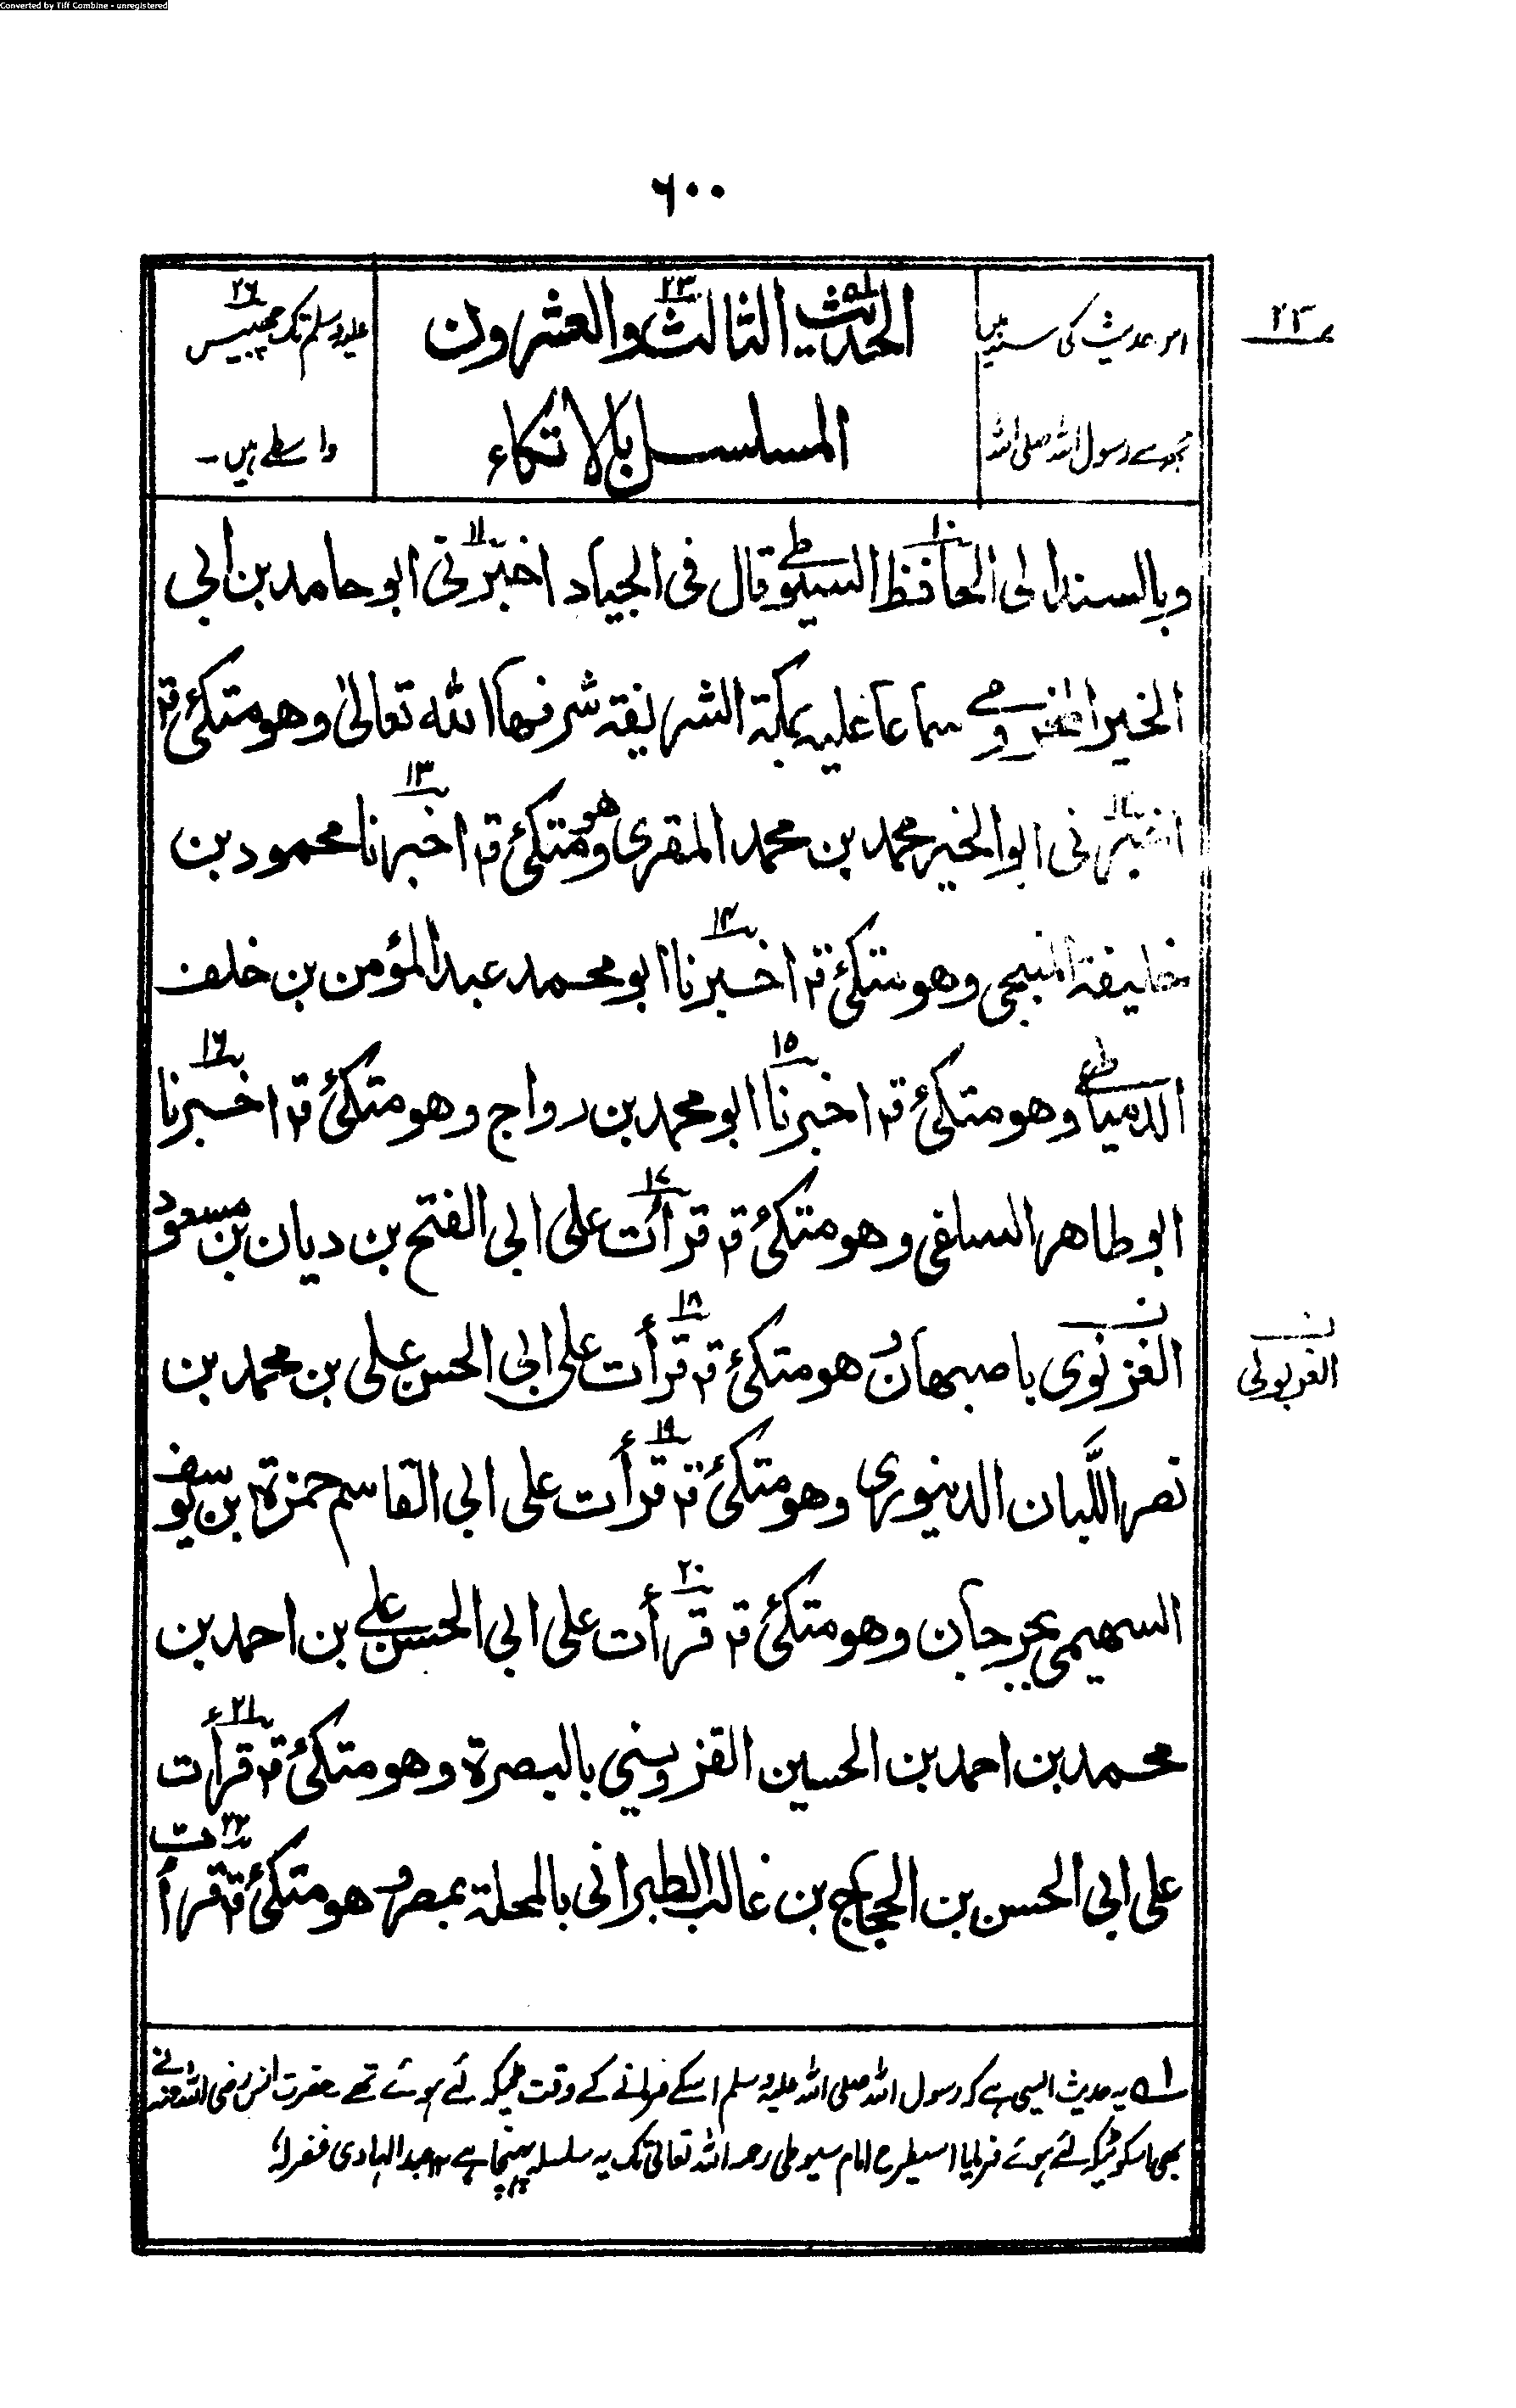 Converted by Tiff Combine - unregistered
٦٠٠
٢٣
اس حدیث کی سند میں
مجھ سے رسول اللہ صلی اللہ
الحدیث الثالث والعشرون
المسلسل بالاتکاء
علیہ وسلم تک چھبیس ٢٦
واسطے ہیں۔
وبالسند الى الحافظ السيوطي ١٠ قال فى الجياد اخبرنى ١١ ابو حامد بن ابى
الخير المخزومي سماعا عليه بمكة الشريفة شرفها الله تعالىٰ وهو متكئ قہ
اخبرنى ١٢ ابو الخير محمد بن محمد المقرى وهو متكئ قہ اخبرنا ١٣ محمود بن
خليفة المنبجى وهو متكئ قہ اخبرنا ١٤ ابو محمد عبد المؤمن بن خلف
الدمياطى وهو متكئ قہ اخبرنا ١٥ ابو محمد بن رواج وهو متكئ قہ اخبرنا ١٦
ابو طاهر السلفى وهو متكئ قہ قرأت ١٧ على ابى الفتح بن ديان بن مسعود
الغزنوى باصبهان وهو متكئ قہ قرأت ١٨ على ابى الحسن على بن محمد بن
ن الغزبولى
نصر اللَّبان الدينورى وهو متكئ قہ قرأت ١٩ على ابى القاسم حمزة ابن يوسف
السهيمى بجرجان وهو متكئ قہ قرأت ٢٠ على ابى الحسن على بن احمد بن
محمد بن احمد بن الحسين القزوينى بالبصرة وهو متكئ قہ قرأت ٢١
على ابى الحسن بن الحجاج بن غالب الطبرانى بالمحلة بمصر وهو متكئ قہ قرأت ٢٢
١ یہ حدیث ایسی ہے کہ رسول اللہ صلی اللہ علیہ وسلم اسکے فرمانے کے وقت ٹیکہ لئے ہوئے تھے حضرت انس رضی اللہ عنہ نے
بھی اسکو ٹیکہ لئے ہوئے فرمایا اسیطرح امام سیوطی رحمہ اللہ تعالیٰ تک یہ سلسلہ پہنچا ہے ١٢ عبد الہادی غفرلہٗ